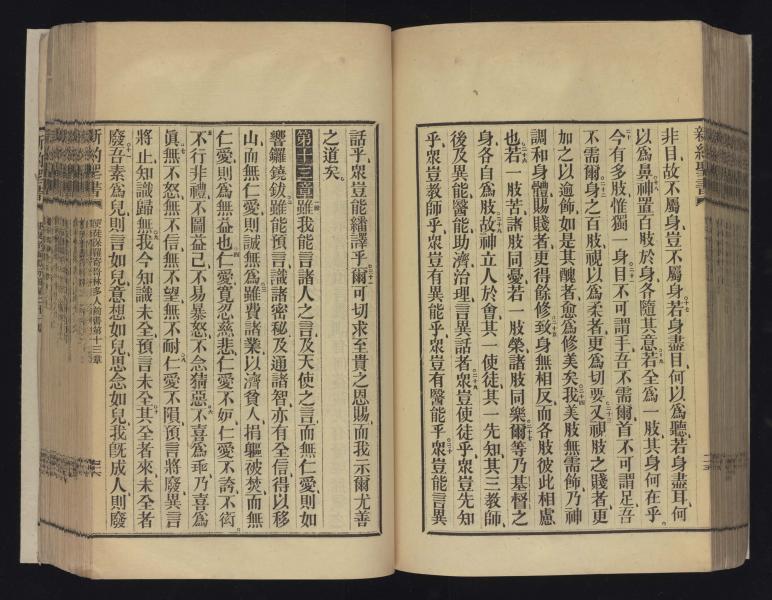 非目故不屬身豈不屬身若身盡目何以爲聽若身盡耳何
以爲鼻神置百肢於身各隨其意若全爲一肢其身何在乎
今有多肢惟獨一身目不可謂手吾不需爾首不可謂足吾
不需爾身之百肢視以爲柔者更爲切要又視肢之賤者更
加之以逾飾如是其醜者愈爲修美矣我美肢無需飾乃神
調和身體賜賤者更得餘修致身無相反而各肢彼此相慮
也若一肢苦諸肢同憂若一肢榮諸肢同樂爾等乃基督之
身各自爲肢故神立人於會其一使徒其一先知其三教師
後及異能醫能助濟治理言異話者眾豈使徒乎眾豈先知
乎眾豈教師乎眾豈有異能乎眾豈有醫能乎眾豈能言異
新約聖書
話乎眾豈能繙譯乎爾可切求至貴之恩賜而我示爾尤善
之道矣
第十三章雖我能言諸人之言及天使之言而無仁愛則如
響鑼鐃鈸雖能預言識諸密秘及通諸智亦有全信得以移
山而無仁愛則誠無爲雖費諸業以濟貧人捐軀被焚而無
仁愛則爲無益也仁愛寬忍慈悲仁愛不妒仁愛不誇不衒
不行非禮不圖益己不易暴怒不念猜惡不喜爲乖乃喜爲
眞無不怒無不信無不望無不耐仁愛不隕預言將廢異言
將止知識歸無我今知識未全預言未全其全者來未全者
廢吾素爲兒則言如兒意想如兒思念如兒我旣成人則廢
新約聖書
使徒保羅寄哥林多人前書第十三章